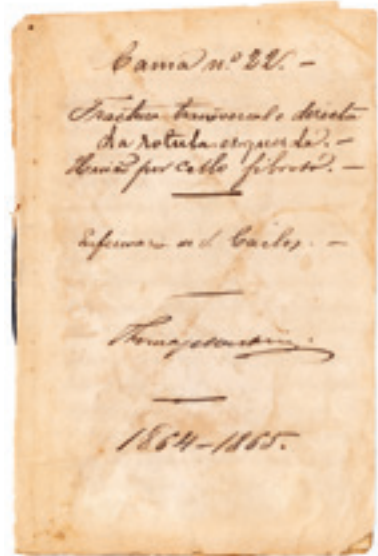 Cama nº 22. -
Fractura transversal e directa
da rotula esquerda. -
União por callo fibroso. -
Enfermaria de S. Carlos. -
1864-1865.